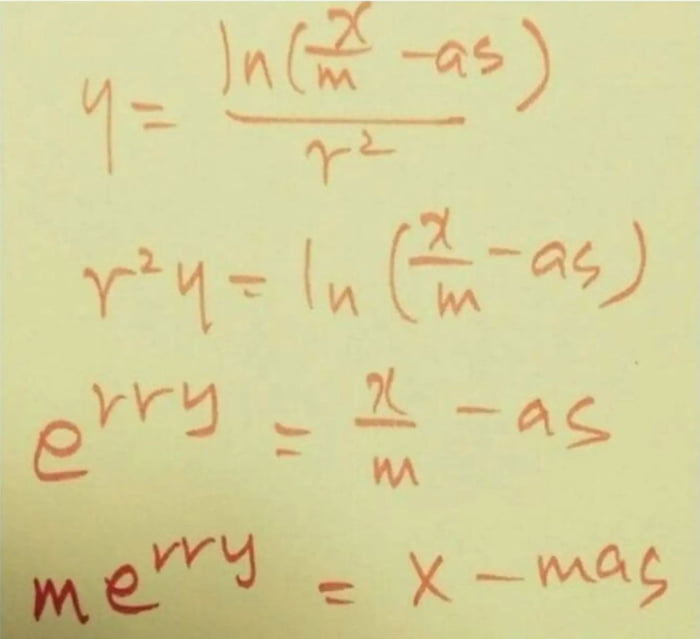 y = ln(x/m - as) / r²
r²y = ln(x/m - as)
e^rry = x/m - as
me^rry = x - mas